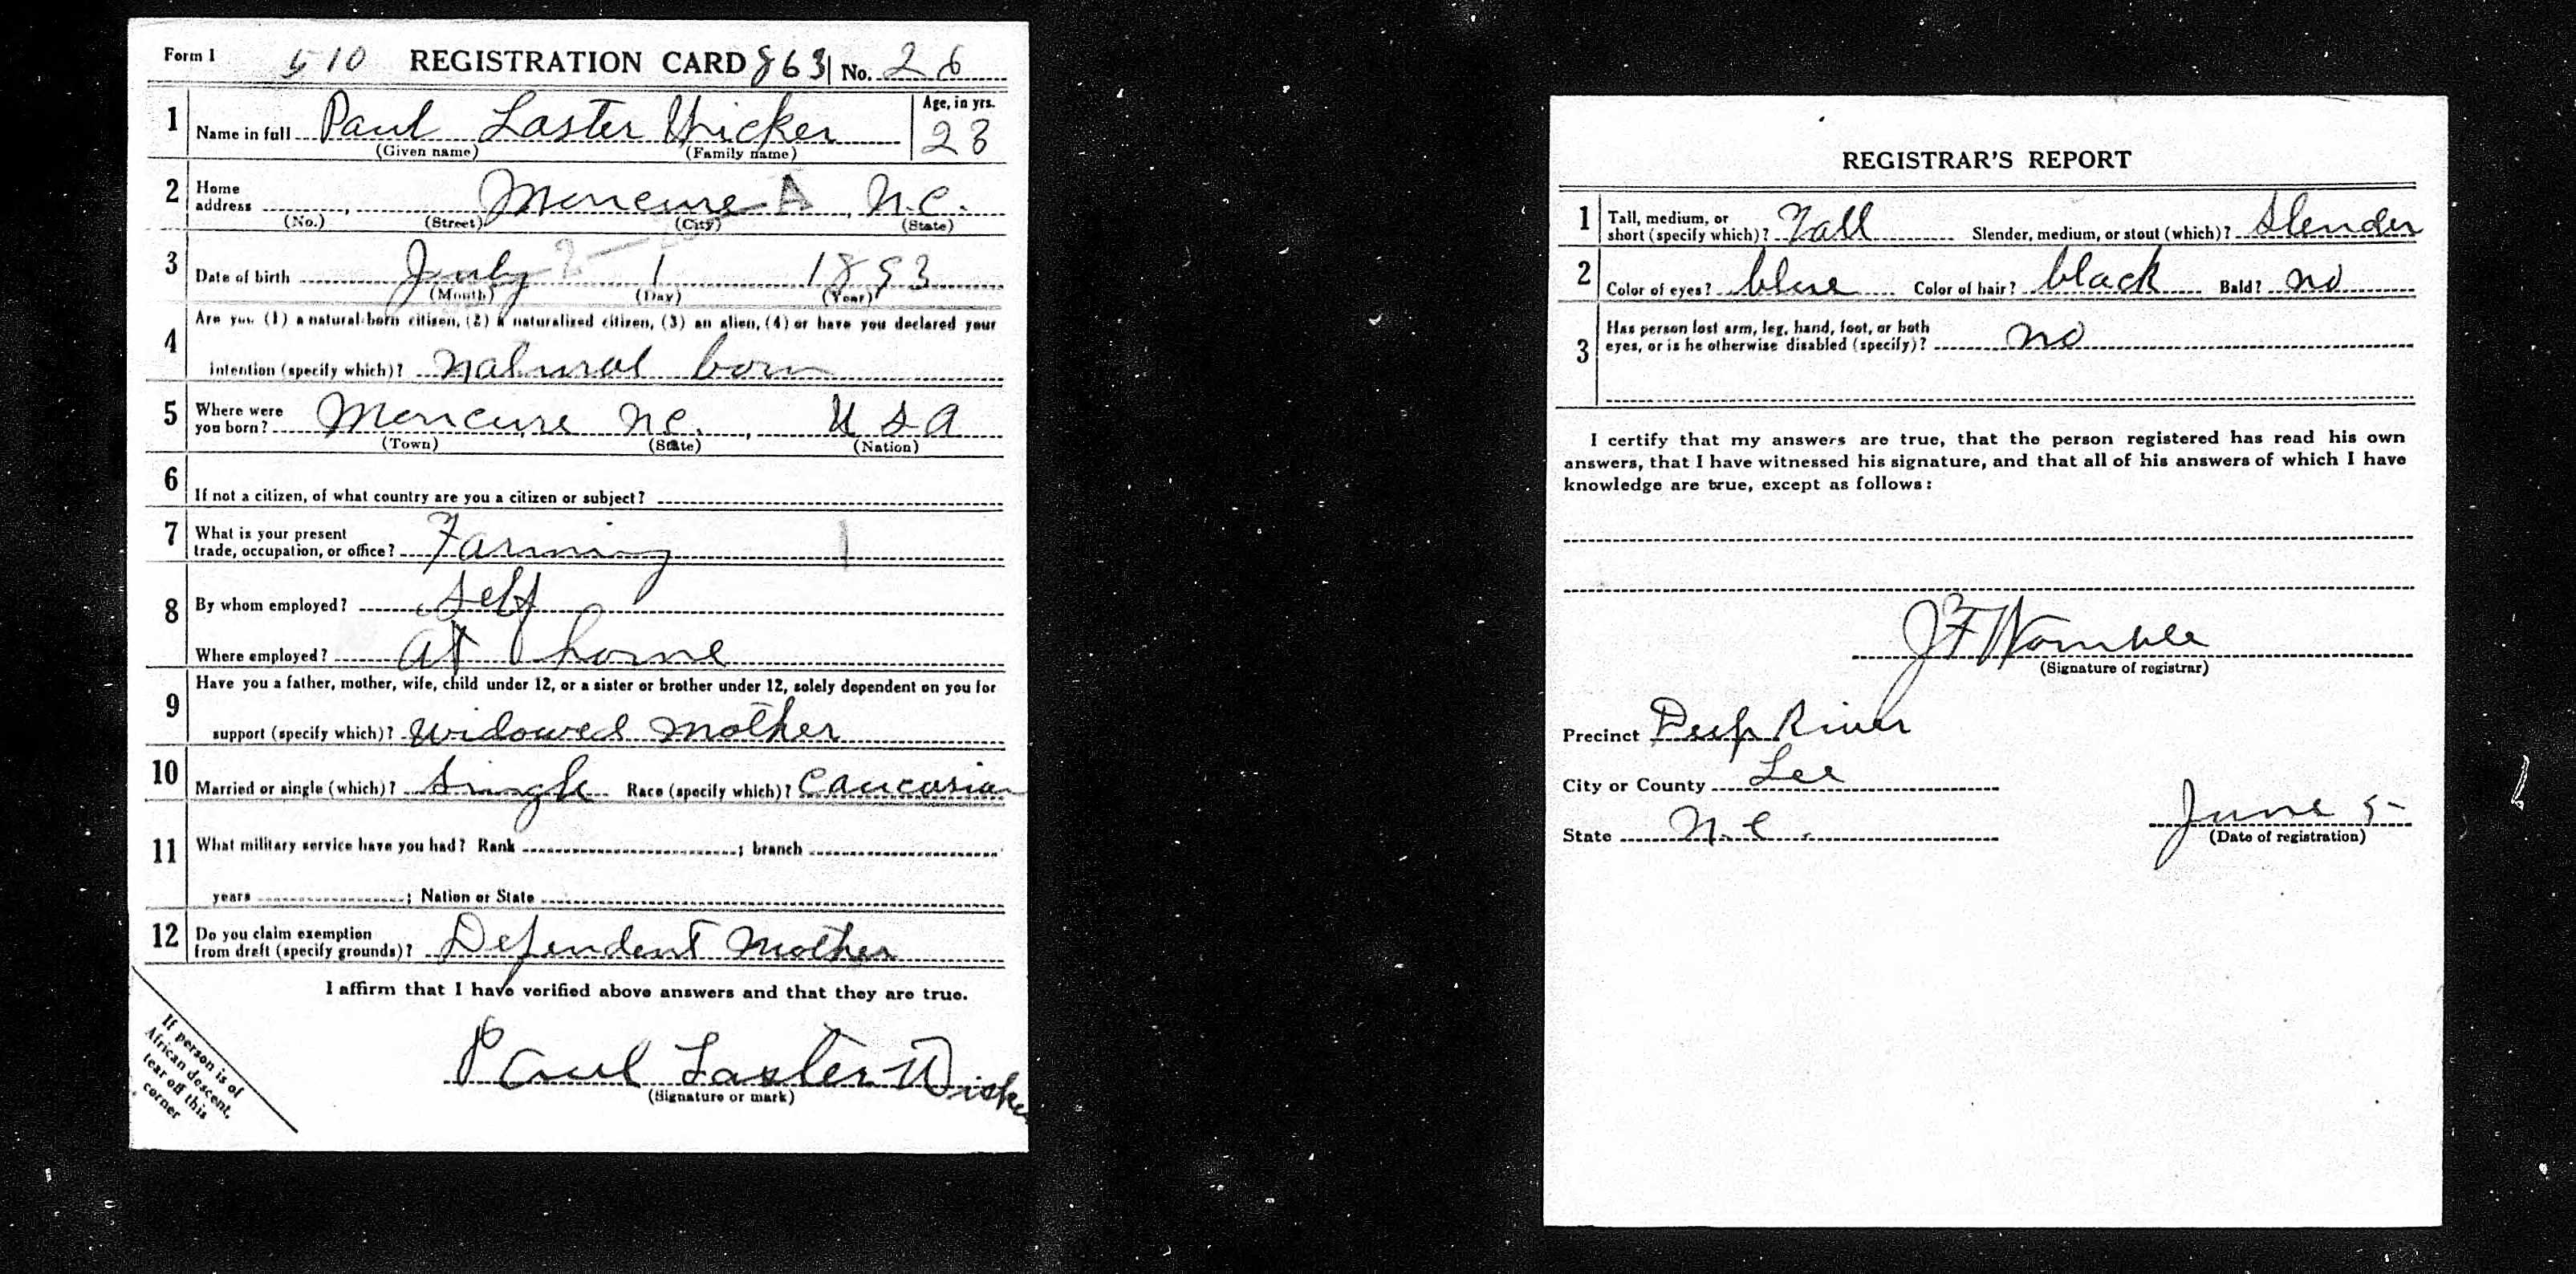 Form 1 510 REGISTRATION CARD 863 No. 26
1 Name in full Paul Laster Wicker Age, in yrs. 23
(Given name) (Family name)
2 Home address Moncure A, N.C.
(No.) (Street) (City) (State)
3 Date of birth July 1 1893
(Month) (Day) (Year)
4 Are you (1) a natural-born citizen, (2) a naturalized citizen, (3) an alien, (4) or have you declared your
intention (specify which)? natural born
5 Where were you born? Moncure N.C., U S A
(Town) (State) (Nation)
6 If not a citizen, of what country are you a citizen or subject?
7 What is your present trade, occupation, or office? Farming
8 By whom employed? Self
Where employed? at home
9 Have you a father, mother, wife, child under 12, or a sister or brother under 12, solely dependent on you for
support (specify which)? widowed mother
10 Married or single (which)? Single Race (specify which)? Caucasian
11 What military service have you had? Rank ; branch
years ; Nation or State
12 Do you claim exemption from draft (specify grounds)? Dependent Mother
I affirm that I have verified above answers and that they are true.
Paul Laster Wicker
(Signature or mark)
If person is of
African descent,
tear off this
corner
REGISTRAR'S REPORT
1 Tall, medium, or short (specify which)? Tall Slender, medium, or stout (which)? Slender
2 Color of eyes? blue Color of hair? black Bald? no
3 Has person lost arm, leg, hand, foot, or both
eyes, or is he otherwise disabled (specify)? no
I certify that my answers are true, that the person registered has read his own
answers, that I have witnessed his signature, and that all of his answers of which I have
knowledge are true, except as follows:
J F Womble
(Signature of registrar)
Precinct Deep River
City or County Lee
State N.C.
June 5
(Date of registration)